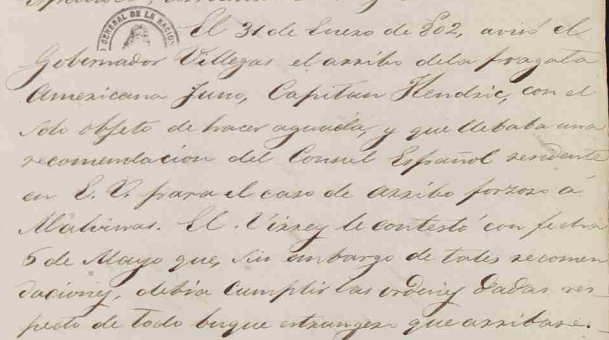 El 31 de Enero de 802, avisó el
GENERAL DE LA NACION
Gobernador Villegas el arribo dela fragata
Americana Juno, Capitan Hendric, con el
solo objeto de hacer aguada, y que llebaba una
recomendacion del Consul Español residente
en E. U. para el caso de arribo forzoso á
Malvinas. El Virrey le contestó con fecha
5 de Mayo que, sin embargo de tales recomen
daciones, debia cumplir las ordenes dadas res-
pecto de todo buque extrangero que arribase.-